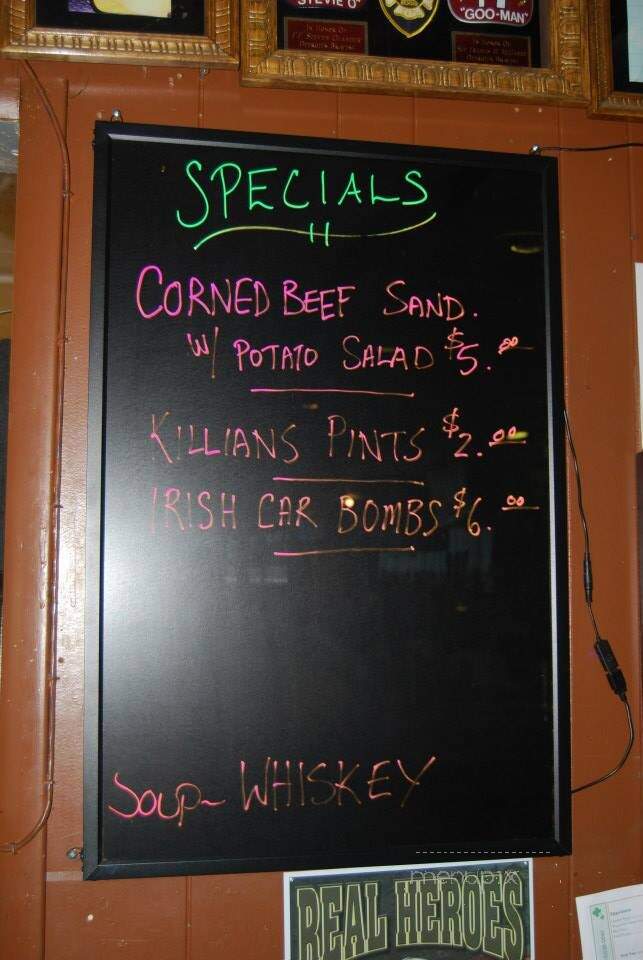 STEVIE O"
"GOO-MAN"
IN HONOR OF
IN HONOR OF
SPECIALS
CORNED BEEF SAND.
W/ POTATO SALAD $5.00
KILLIANS PINTS $2.00
IRISH CAR BOMBS $6.00
SOUP~ WHISKEY
menupix
REAL HEROES